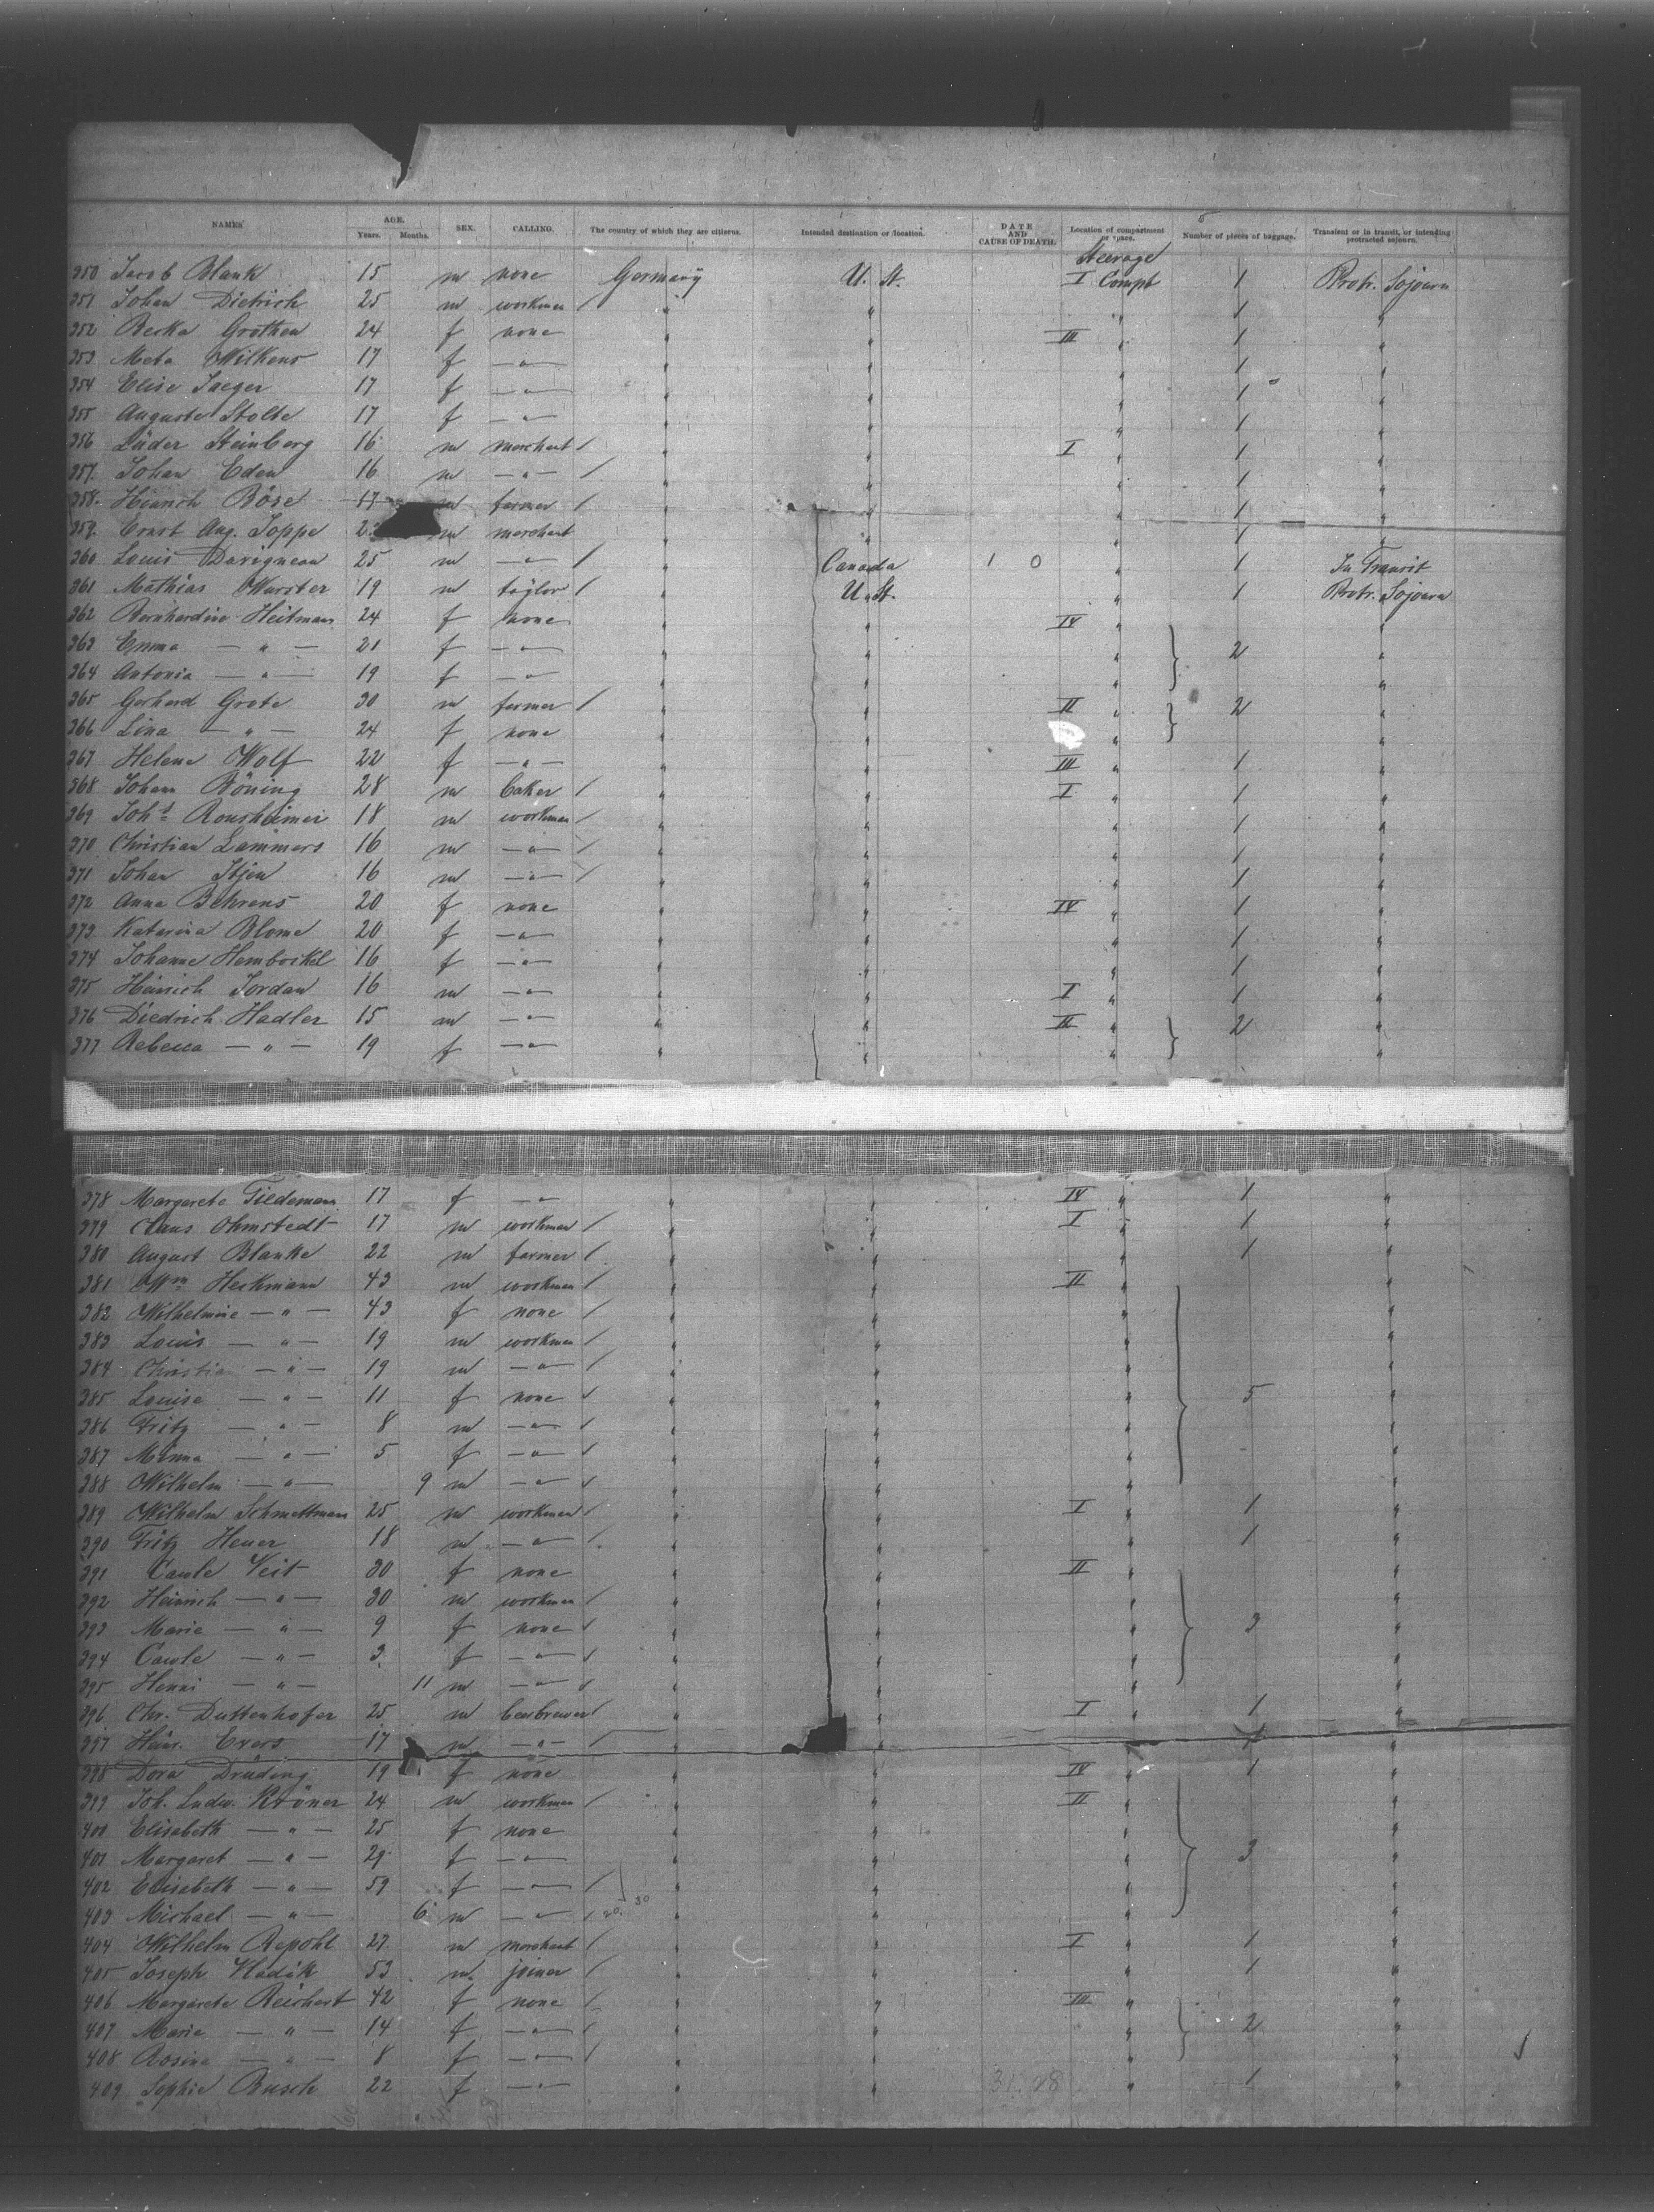 NAMES AGE. Years. Months. SEX. CALLING. The country of which they are citizens. Intended destination or location. DATE AND CAUSE OF DEATH. Location of compartment or space. Number of pieces of baggage. Transient or in transit, or intending protracted sojourn.
Steerage
350 Jacob Blank 15 m none Germany U. St. I Compt 1 Protr. Sojourn
351 Johan Dietrich 25 m workman / " " " 1 "
352 Becka Grothen 24 f none " " III " 1 "
353 Meta Wilkens 17 f —"— " " " 1 "
354 Elise Jaeger 17 f —"— " " " 1 "
355 Auguste Stolte 17 f —"— " " " 1 "
356 Lüder Steinberg 16 m merchant / " " I " 1 "
357. Johan Eden 16 m —"— / " " " 1 "
358. Heinrich Böse 17 m farmer / " " " 1 "
359. Ernst Aug. Joppe m merchant " " " 1 "
360 Louis Davigneau 25 m —"— / " Canada 1 0 " 1 In Transit
361 Mathias Wurster 19 m taylor / " U. St. " 1 Protr. Sojourn
362 Bernhardine Heitman 24 f none " " IV " "
363 Emma — " — 21 f —"— " " " 2 "
364 Antonia — " — 19 f —"— " " " "
365 Gerhard Grote 30 m farmer / " " II " 2 "
366 Lina — " — 24 f none " " " "
367 Helene Wolf 22 f —"— " " III " 1 "
368 Johann Böning 28 m baker / " " I " 1 "
369 Joh. Ronsheimer 18 m workman / " " " 1 "
370 Christian Lammers 16 m —"— / " " " 1 "
371 Johan Itjen 16 m —"— / " " " 1 "
372 Anna Behrens 20 f none " " IV " 1 "
373 Katarina Blome 20 f —"— " " " 1 "
374 Johanne 16 f —"— " " " 1 "
375 Heinrich Jordan 16 m —"— " " I " 1 "
376 Diedrich Hadler 15 m —"— " " III " 2 "
377 Rebecca — " — 19 f —"— " " " "
378 Margarete Tiedemann 17 f —"— " " IV " 1 "
379 Claus Ohmstedt 17 m workman / " " I " 1 "
380 August Blanke 22 m farmer / " " " 1 "
381 Wm Heckmann 43 m workman / " " II " "
382 Wilhelmine — " — 43 f none / " " " "
383 Louis — " — 19 m workman / " " " "
384 Christia — " — 19 m —"— / " " " "
385 Louise — " — 11 f none / " " " 5 "
386 Fritz — " — 8 m —"— / " " " "
387 Minna — " — 5 f —"— / " " " "
388 Wilhelm — " — 9 m —"— / " " " "
389 Wilhelm Schmettmann 25 m workman / " " I " 1 "
390 Fritz Heuer 18 m —"— / " " " 1 "
391 Carole Veit 30 f none " " II " "
392 Heinrich — " — 30 m workman / " " " "
393 Marie — " — 9 f none / " " " 3 "
394 Carole — " — 3 f —"— / " " " "
395 Henni — " — 11 m —"— / " " " "
396 Chr. Duttenhofer 25 m beerbrewer / " " I " 1 "
397 Heinr. Evers 17 m —"— / " " " 1 "
398 Dora Drüding 19 f none " " IV " 1 "
399 Joh. Ludw. Kröner 24 m workman / " " II " "
400 Elisabeth — " — 25 f none " " " "
401 Margaret — " — 29 f —"— " " " 3 "
402 Elisabeth — " — 59 f —"— / " " " "
403 Michael — " — 6 m —"— / 20. 30 " " " "
404 Wilhelm Repohl 27 m merchant / " " I " 1 "
405 Joseph Hladik 53 m joiner / " " " 1 "
406 Margarete Reichert 42 f none / " " III " "
407 Marie — " — 14 f —"— / " " " 2 "
408 Rosina — " — 8 f —"— / " " " "
409 Sophie Busch 22 f —"— " " 31.28 " 1 "